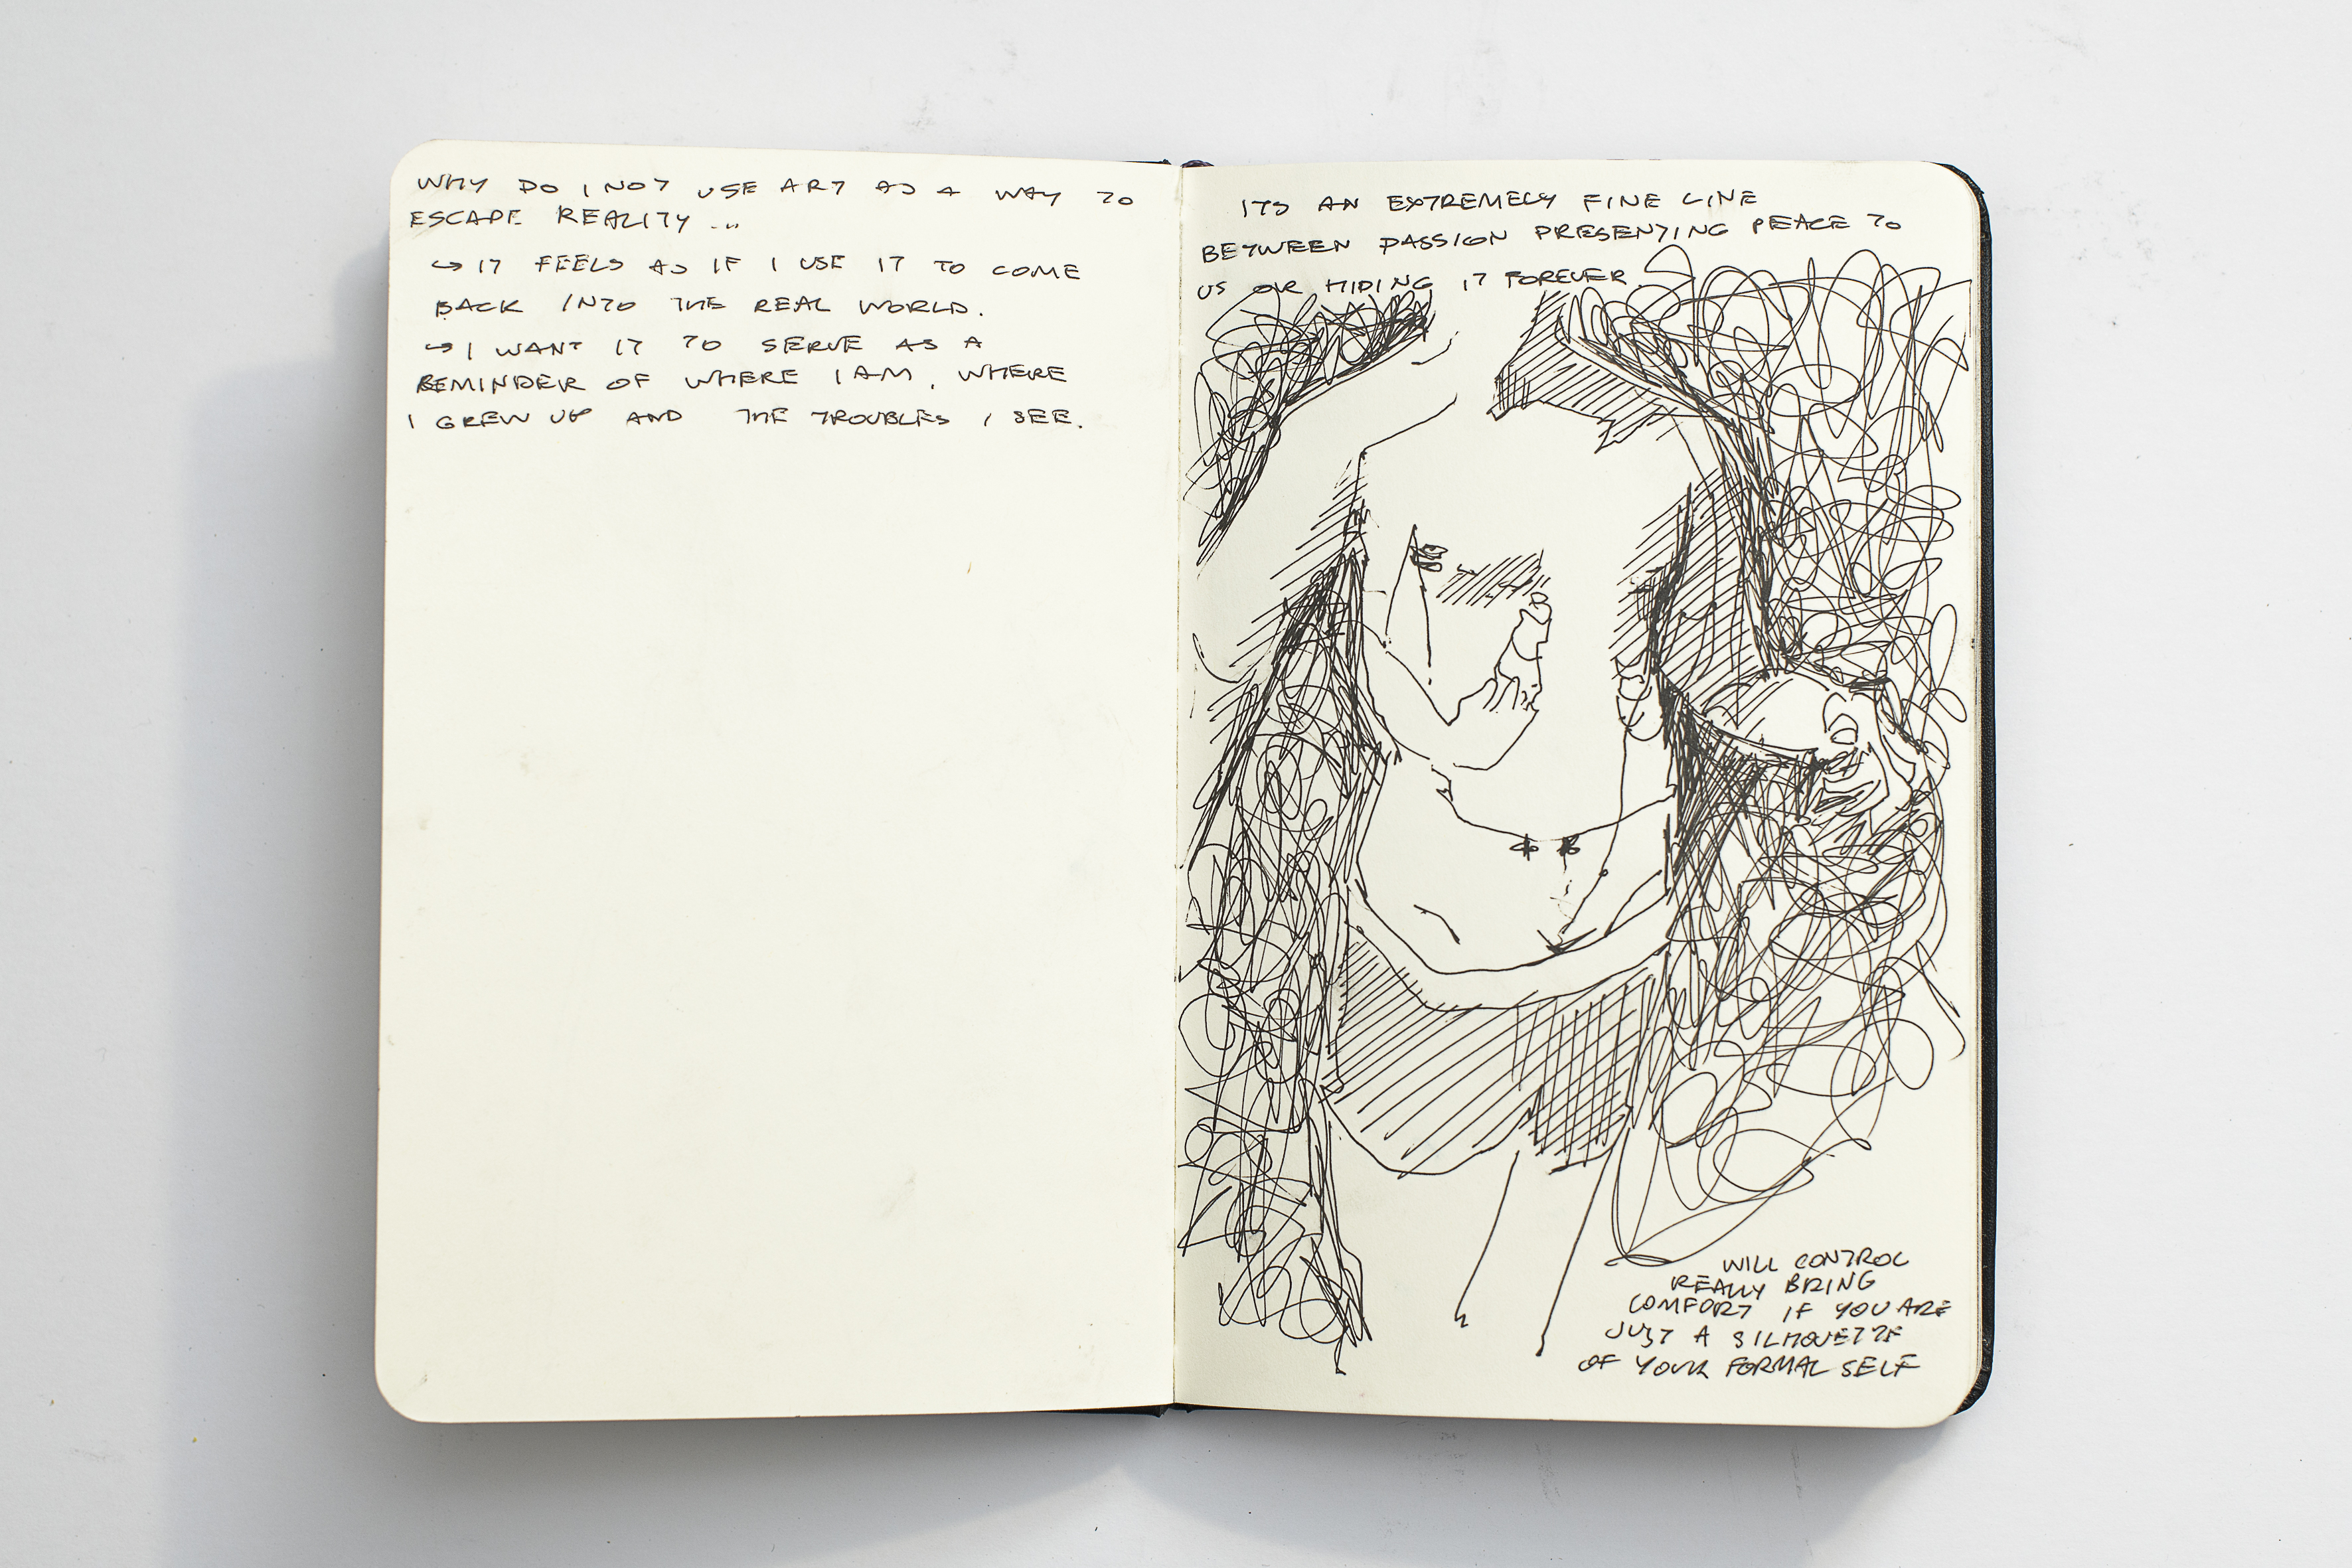 WHY DO I NOT USE ART AS A WAY TO
ESCAPE REALITY ...
↪ IT FEELS AS IF I USE IT TO COME
BACK INTO THE REAL WORLD.
↪ I WANT IT TO SERVE AS A
REMINDER OF WHERE I AM, WHERE
I GREW UP AND THE TROUBLES I SEE.
ITS AN EXTREMELY FINE LINE
BETWEEN PASSION PRESENTING PEACE TO
US OR HIDING IT FOREVER.
WILL CONTROL
REALLY BRING
COMFORT IF YOU ARE
JUST A SILHOUETTE
OF YOUR FORMAL SELF